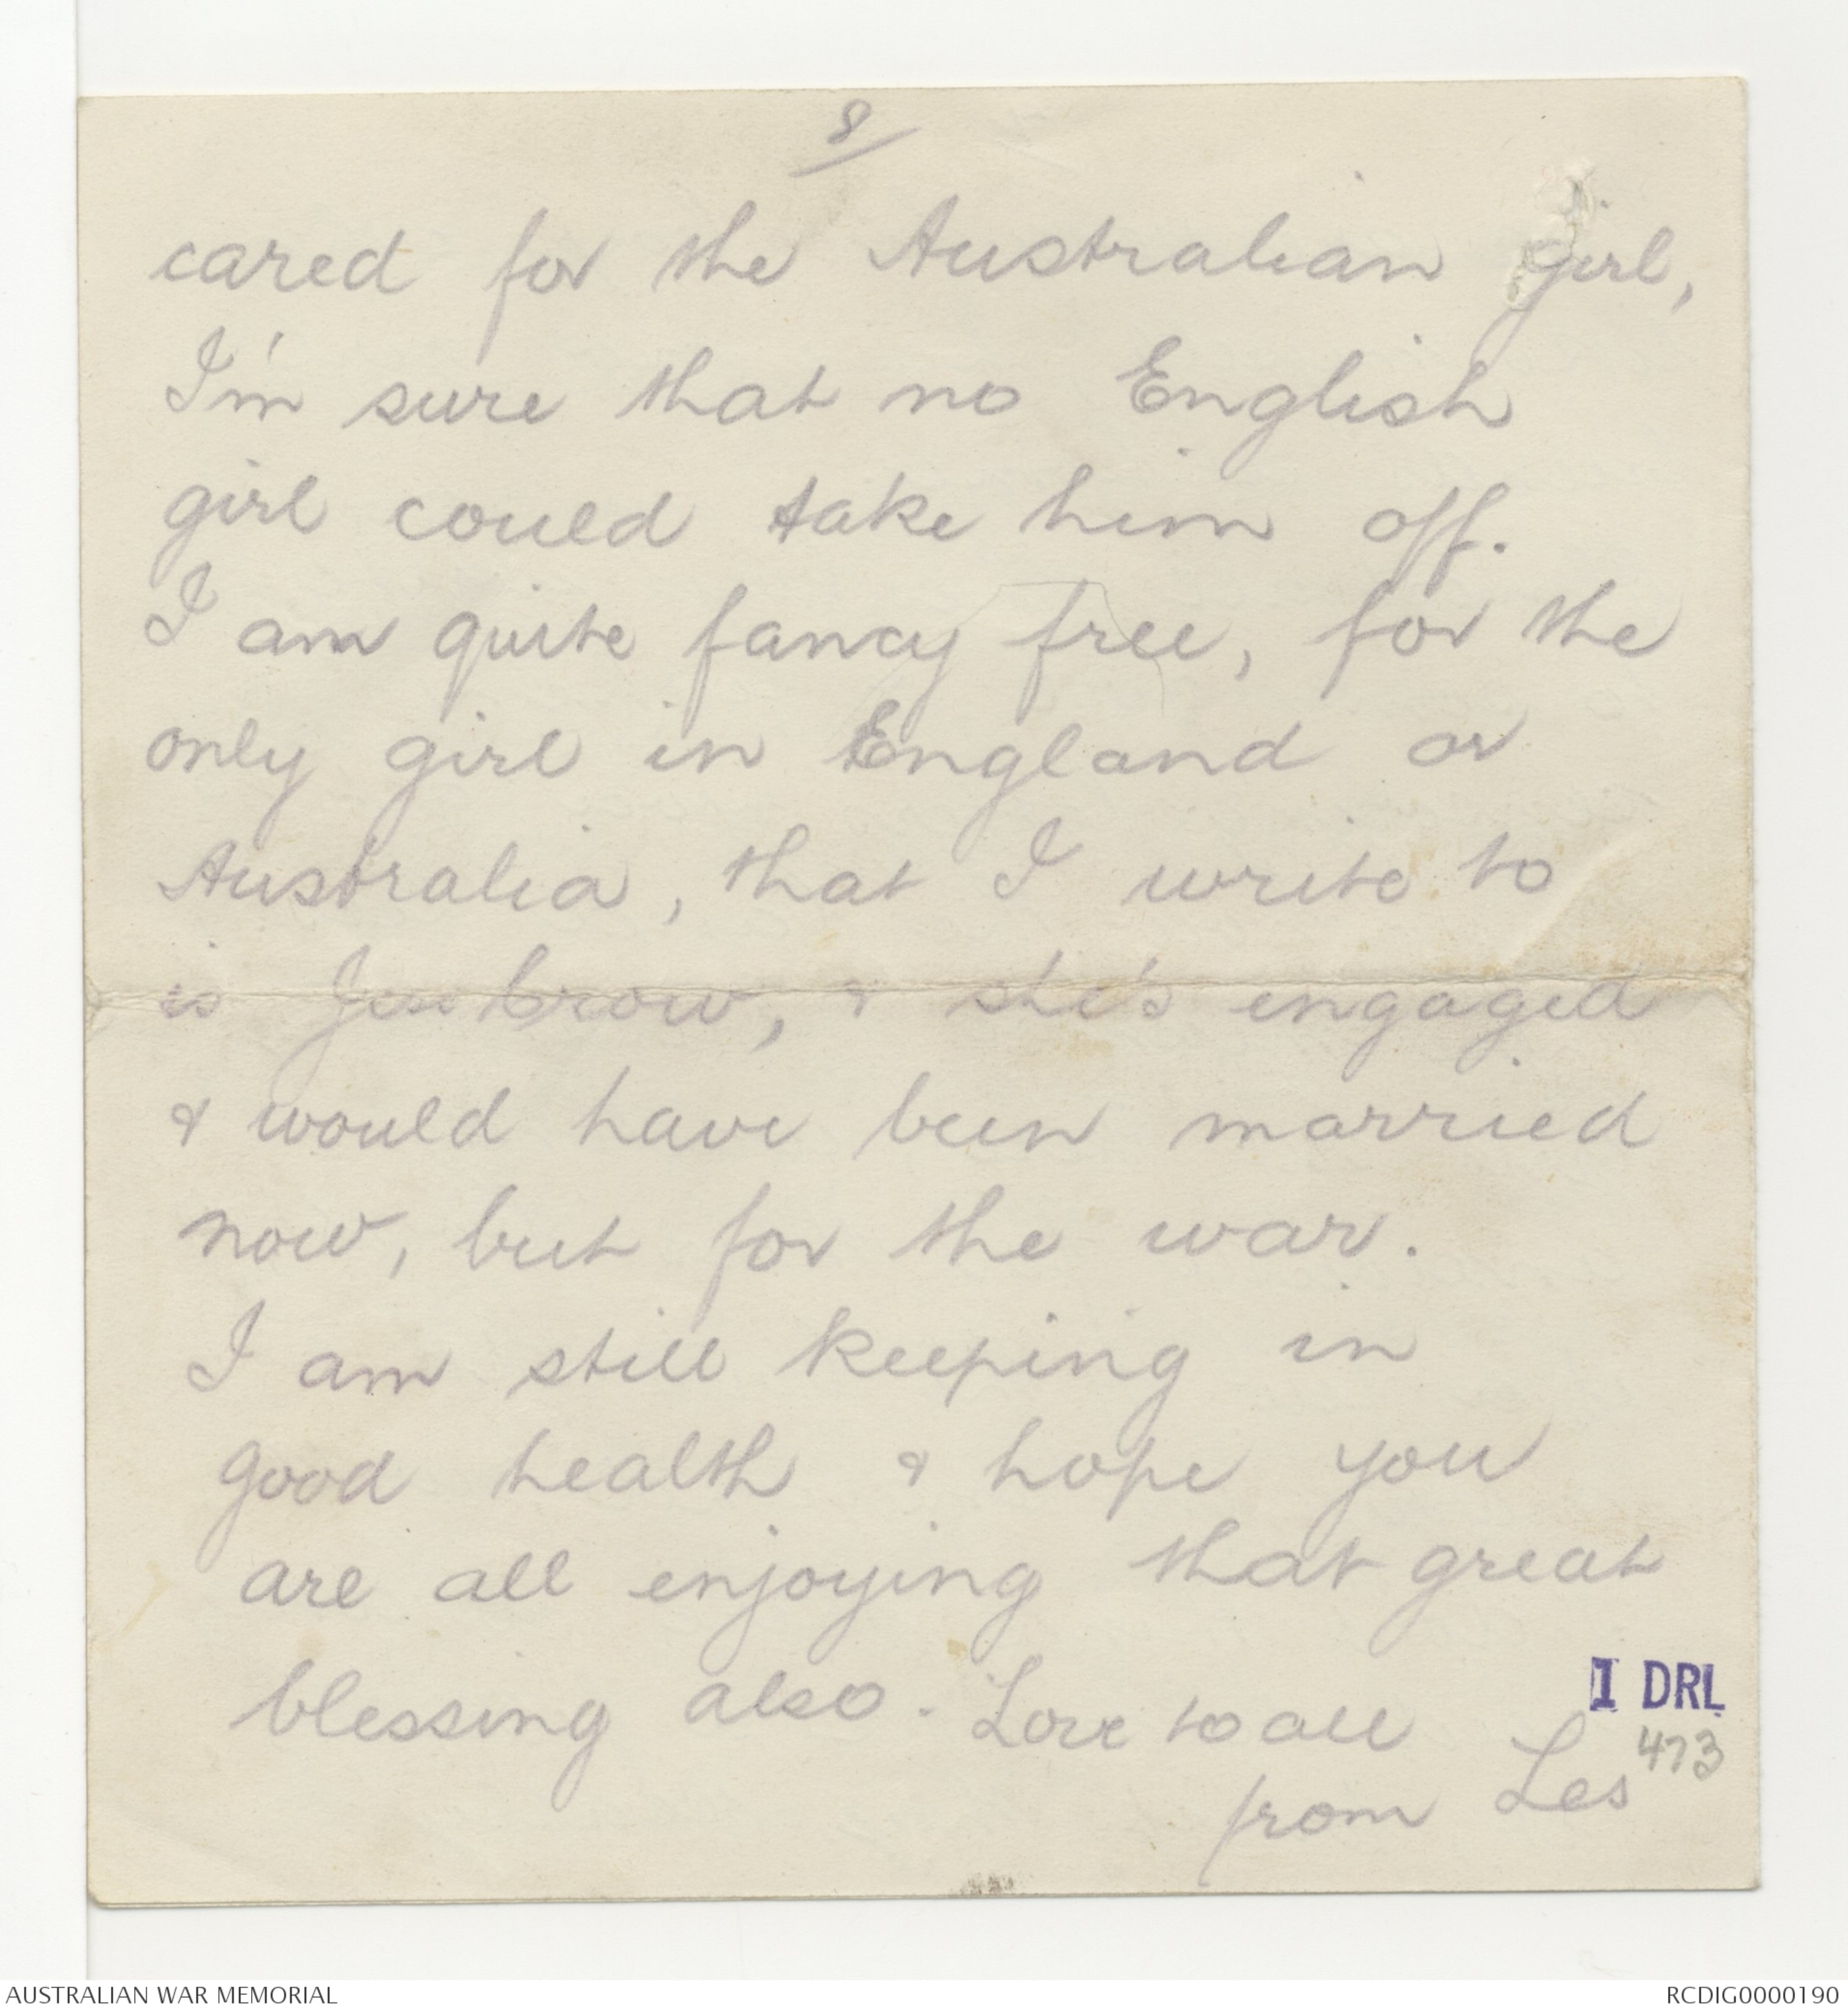 8/
cared for the Australian girl,
I'm sure that no English
girl could take him off.
I am quite fancy free, for the
only girl in England or
Australia, that I write to
is Jess Crow, & she's engaged
& would have been married
now, but for the war.
I am still keeping in
good health & hope you
are all enjoying that great
blessing also. Love to all
from Les
I DRL
473
AUSTRALIAN WAR MEMORIAL
RCDIG0000190